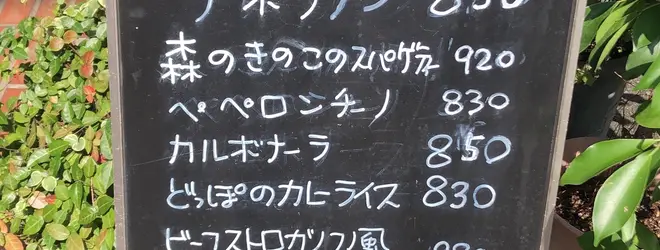 ナポリタン 850
森のきのこのスパゲティ 920
ペペロンチーノ 830
カルボナーラ 850
どっぽのカレーライス 830
ビーフストロガノフ風